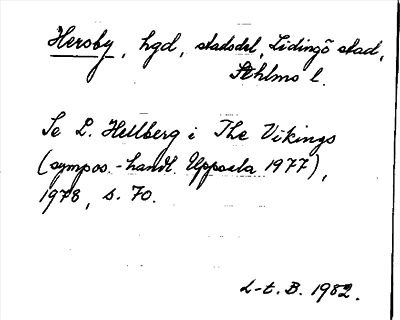 Hersby, hgd, stadsdel, Lidingö stad,
Sthlms l.
Se L. Hellberg i The Vikings
(sympos.-handl. Uppsala 1977),
1978, s. 70.
L-t. B. 1982.